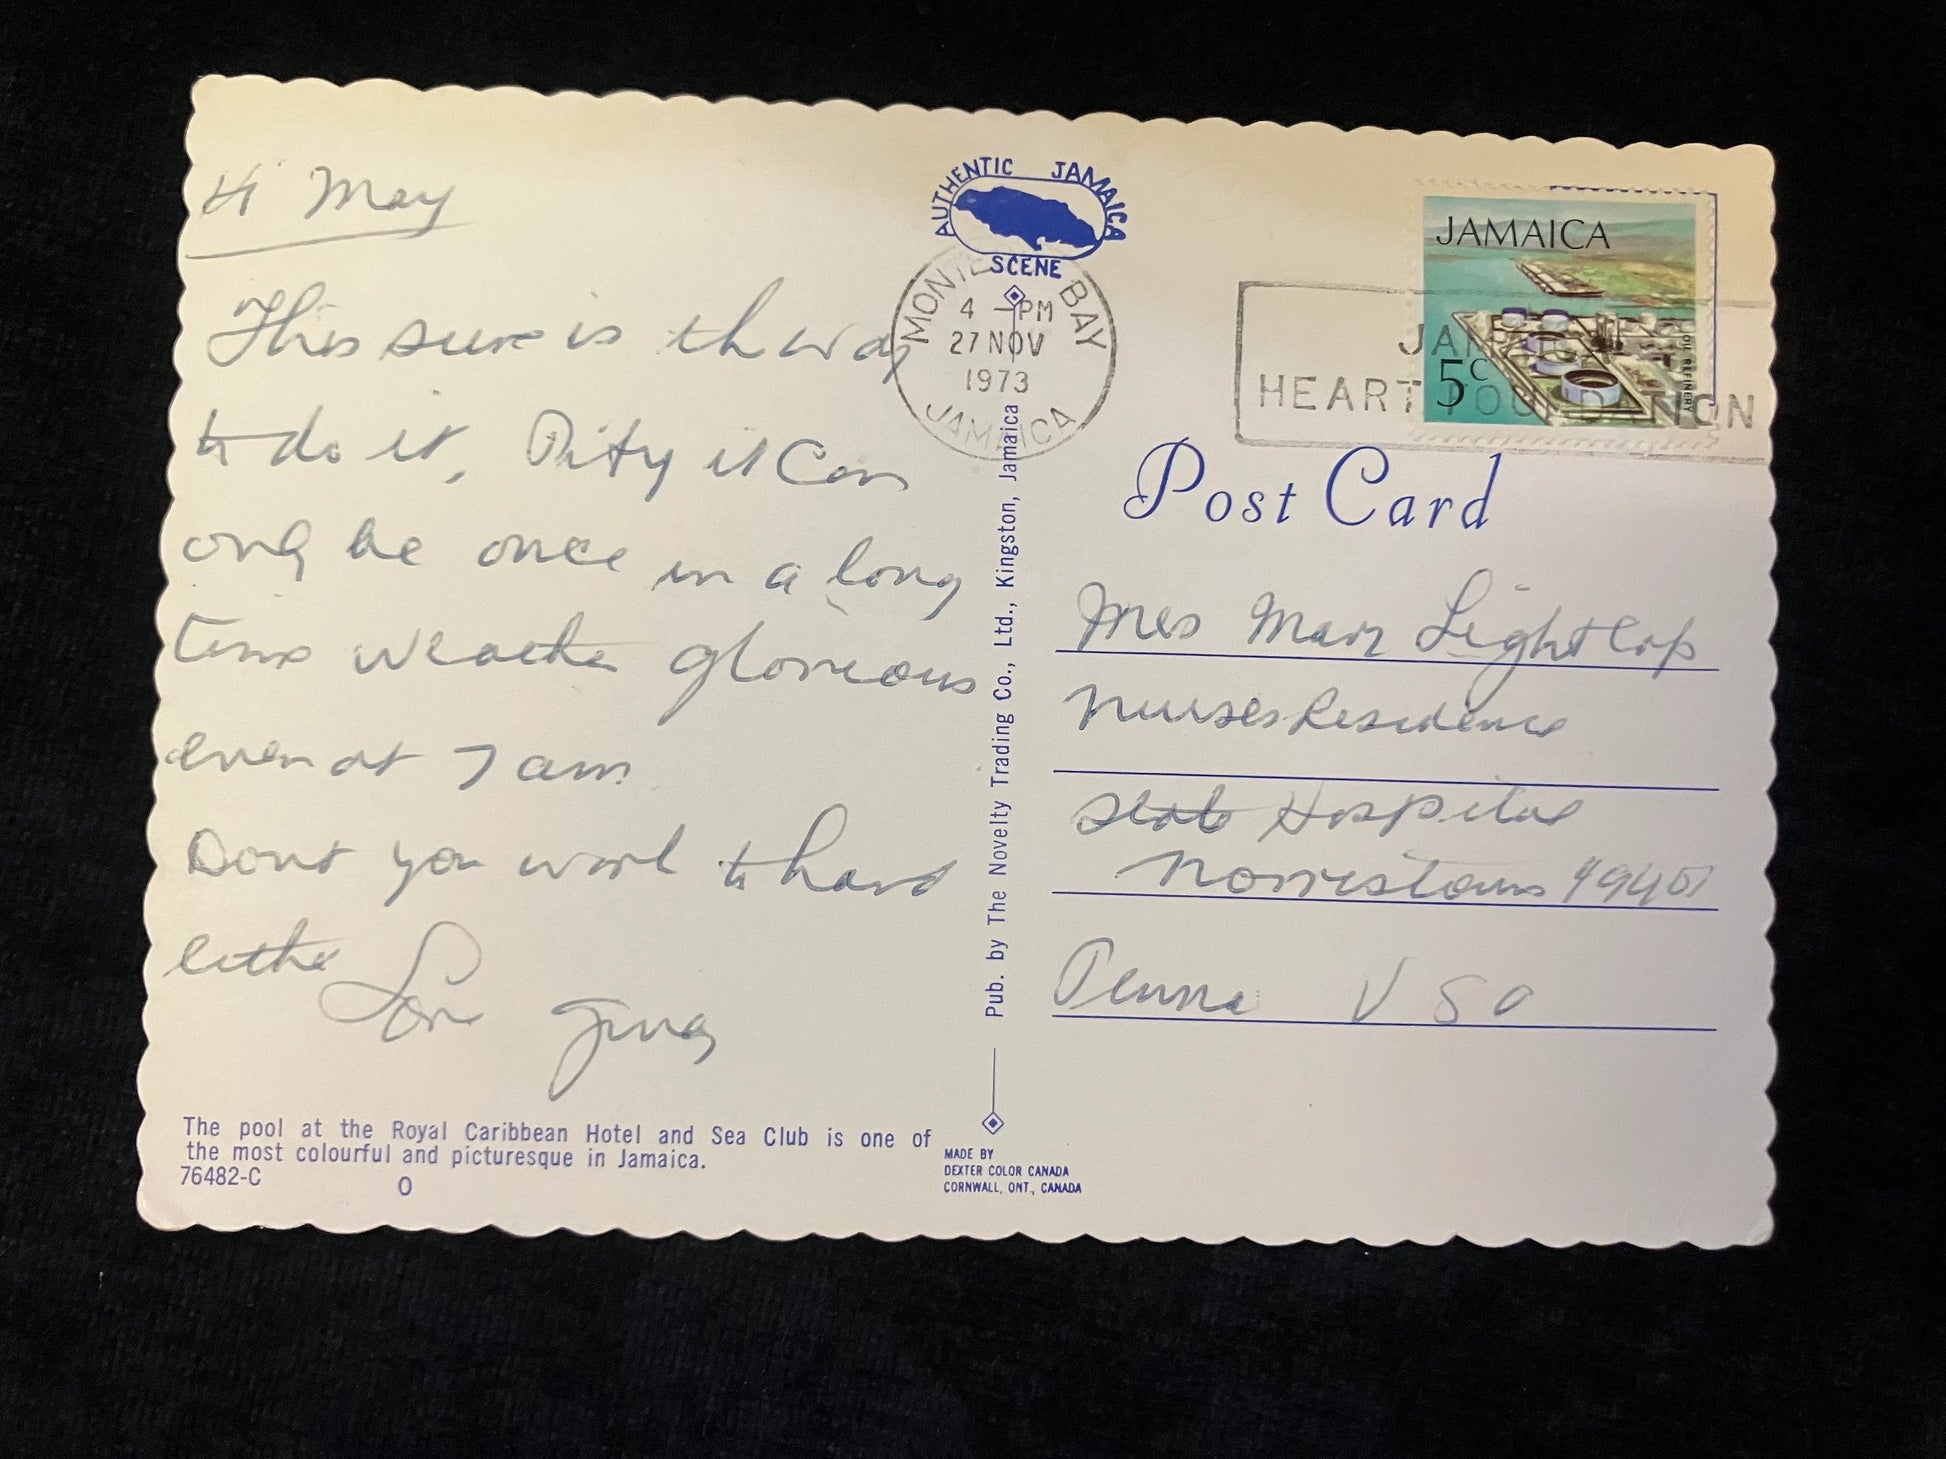 Hi May
This sure is th way
to do it, Pity it can
only be once in a long
time weather glorious
even at 7 am.
Dont you work to hard
either
Love
The pool at the Royal Caribbean Hotel and Sea Club is one of
the most colourful and picturesque in Jamaica.
76482-C
O
AUTHENTIC JAMAICA
SCENE
MONTEGO BAY
4 -PM
27 NOV
1973
JAMAICA
Pub. by The Novelty Trading Co., Ltd., Kingston, Jamaica
MADE BY
DEXTER COLOR CANADA
CORNWALL, ONT., CANADA
JAMAICA
5c
OIL REFINERY
JAMAICA
HEART FOUNDATION
Post Card
Mrs Mary Lightcap
Nurses Residence
State Hospital
Norristown 19401
Penna USA